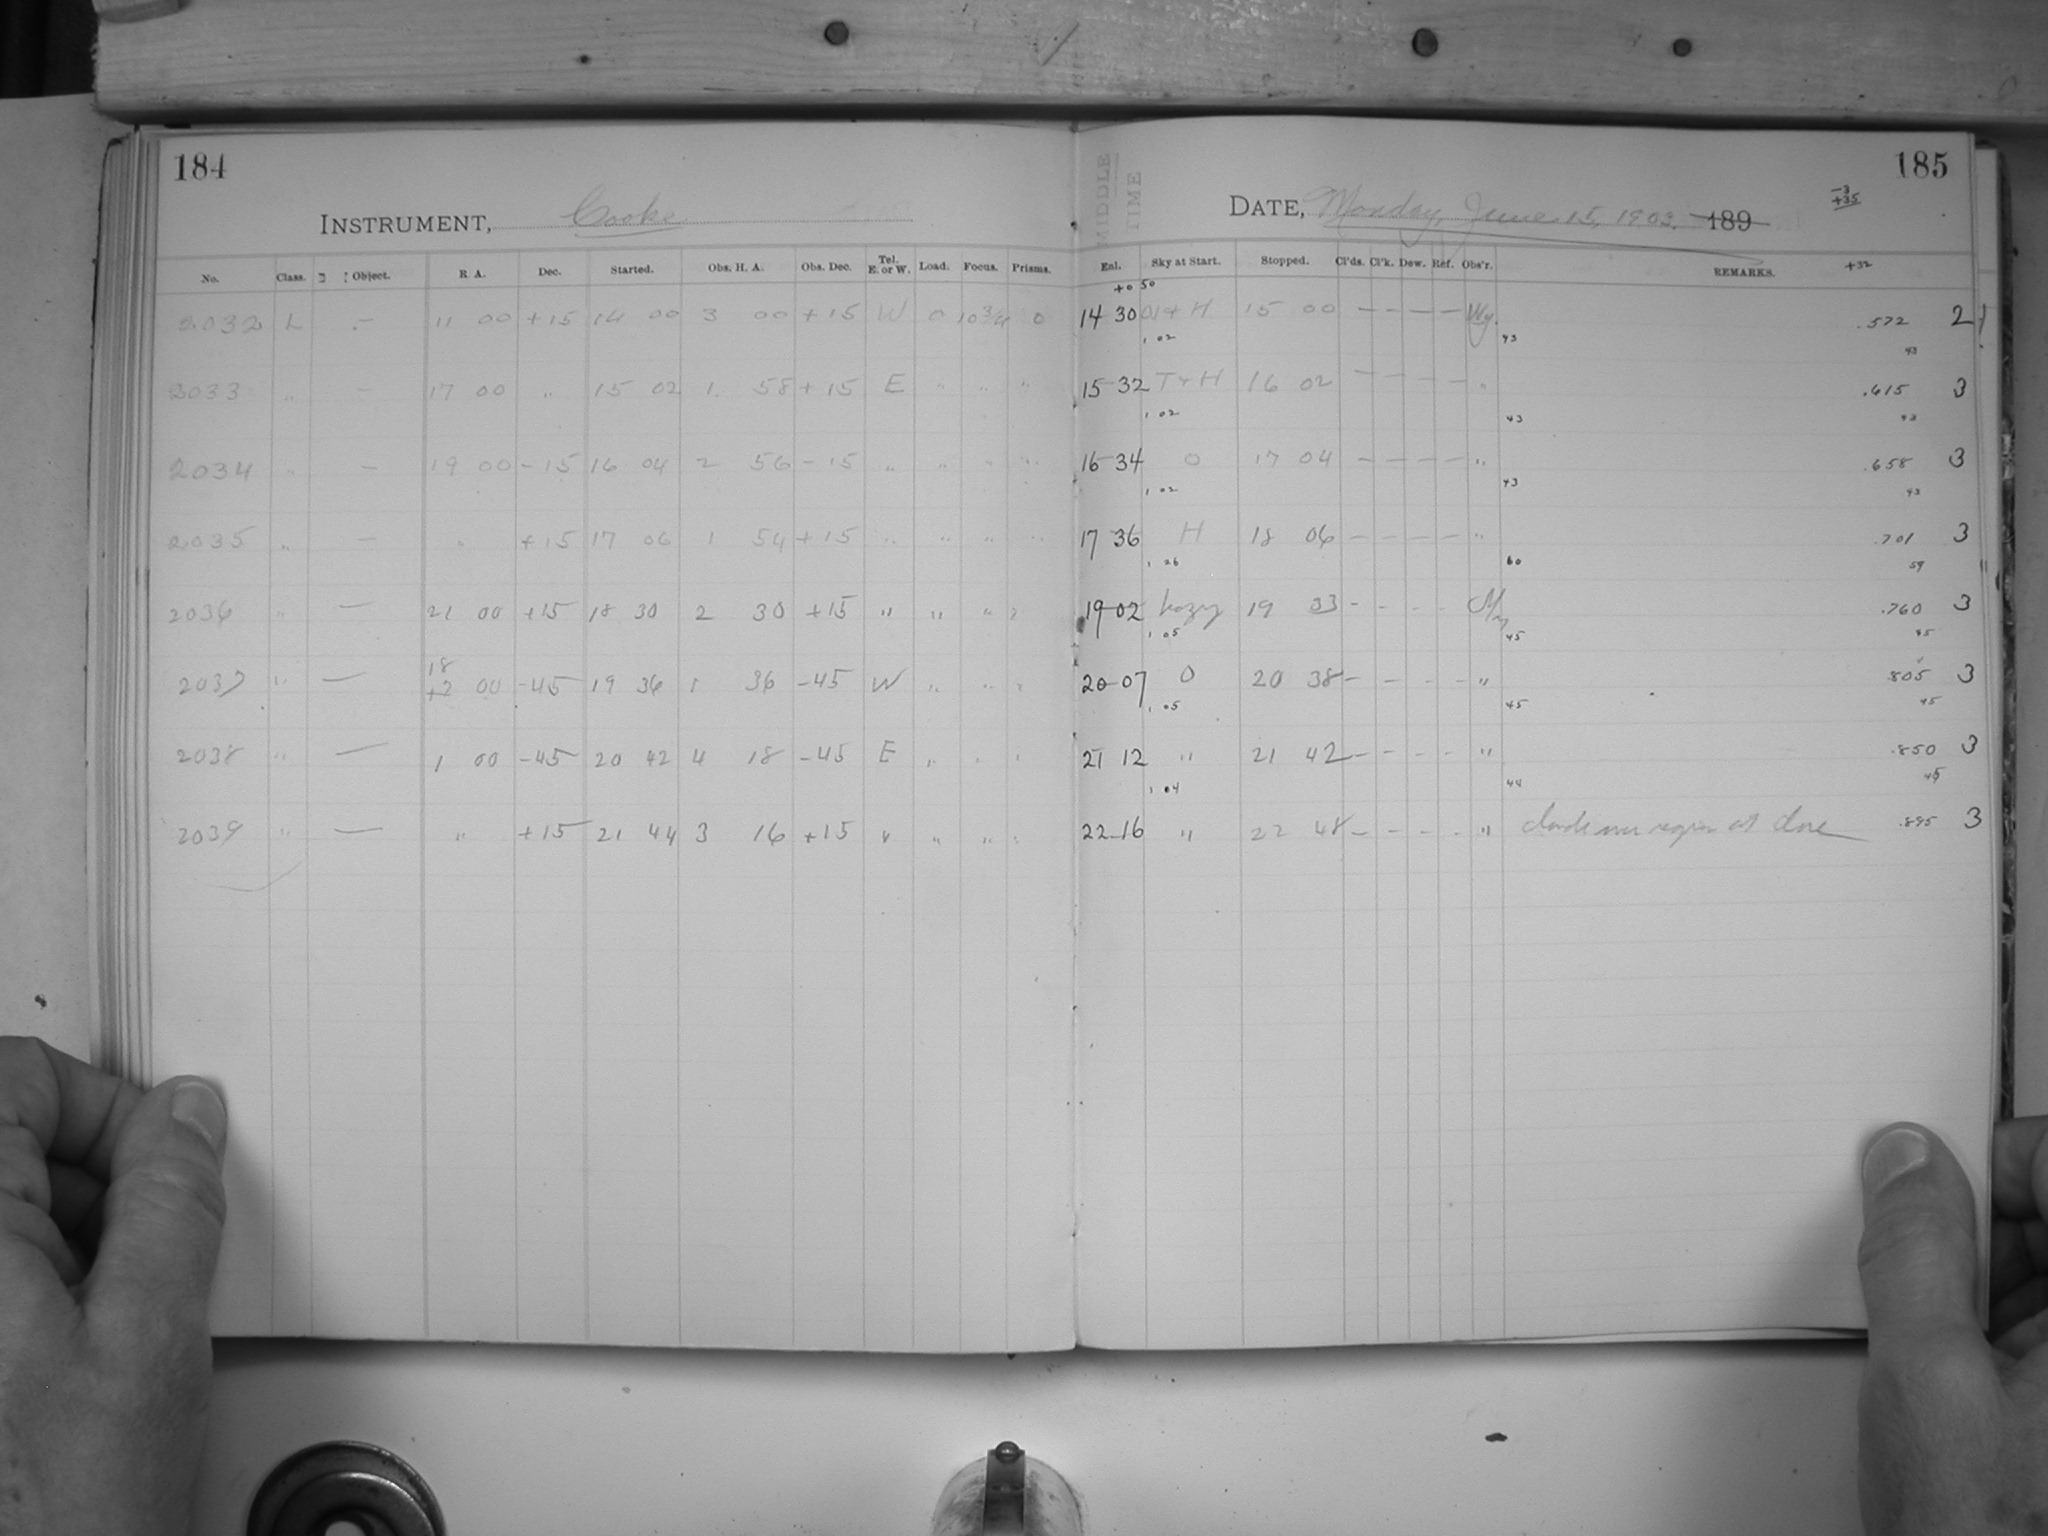 184
INSTRUMENT, Cooke
No. Class. Object. R. A. Dec. Started. Obs. H. A. Obs. Dec. Tel. E. or W. Load. Focus. Prisms.
2032 L — 11 00 +15 14 00 3 00 +15 W 0 10 3/4 0
2033 " — 17 00 " 15 02 1 58 +15 E " " "
2034 " — 19 00 -15 16 04 2 56 -15 " " " "
2035 " — " +15 17 06 1 54 +15 " " " "
2036 " — 21 00 +15 18 30 2 30 +15 " " " "
18
2037 " — 00 -45 19 36 1 36 -45 W " " "
2038 " — 1 00 -45 20 42 4 18 -45 E " " "
2039 " — " +15 21 44 3 16 +15 " " " "
MIDDLE TIME
185
-3
+35
DATE, Monday, June 15, 1903. 189
Enl. Sky at Start. Stopped. Cl'ds. Cl'k. Dew. Ref. Obs'r. REMARKS. +32
+0 50
14 30 H 15 00 — — — — .572 2
1 02 43 43
15 32 T + H 16 02 — — — — " .615 3
1 02 43 43
16 34 0 17 04 — — — — " .658 3
1 02 43 43
17 36 H 18 06 — — — — " .701 3
1 26 60 59
19 02 hazy 19 33 - - - - .760 3
1 05 45 45
20 07 0 20 38 - - - - " .805 3
1 05 45 45
21 12 " 21 42 - - - - " .850 3
1 04 44 45
22 16 " 22 48 - - - - " clouds near region at close .895 3